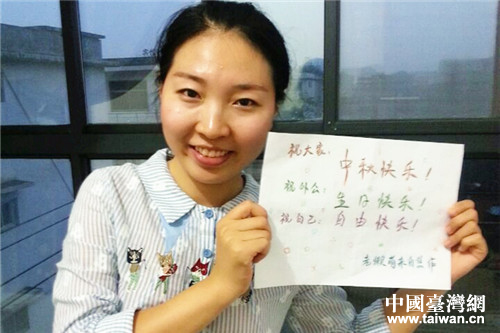 祝大家：中秋快乐！
祝外公：生日快乐！
祝自己：自由快乐！
中國臺灣網
www.taiwan.cn